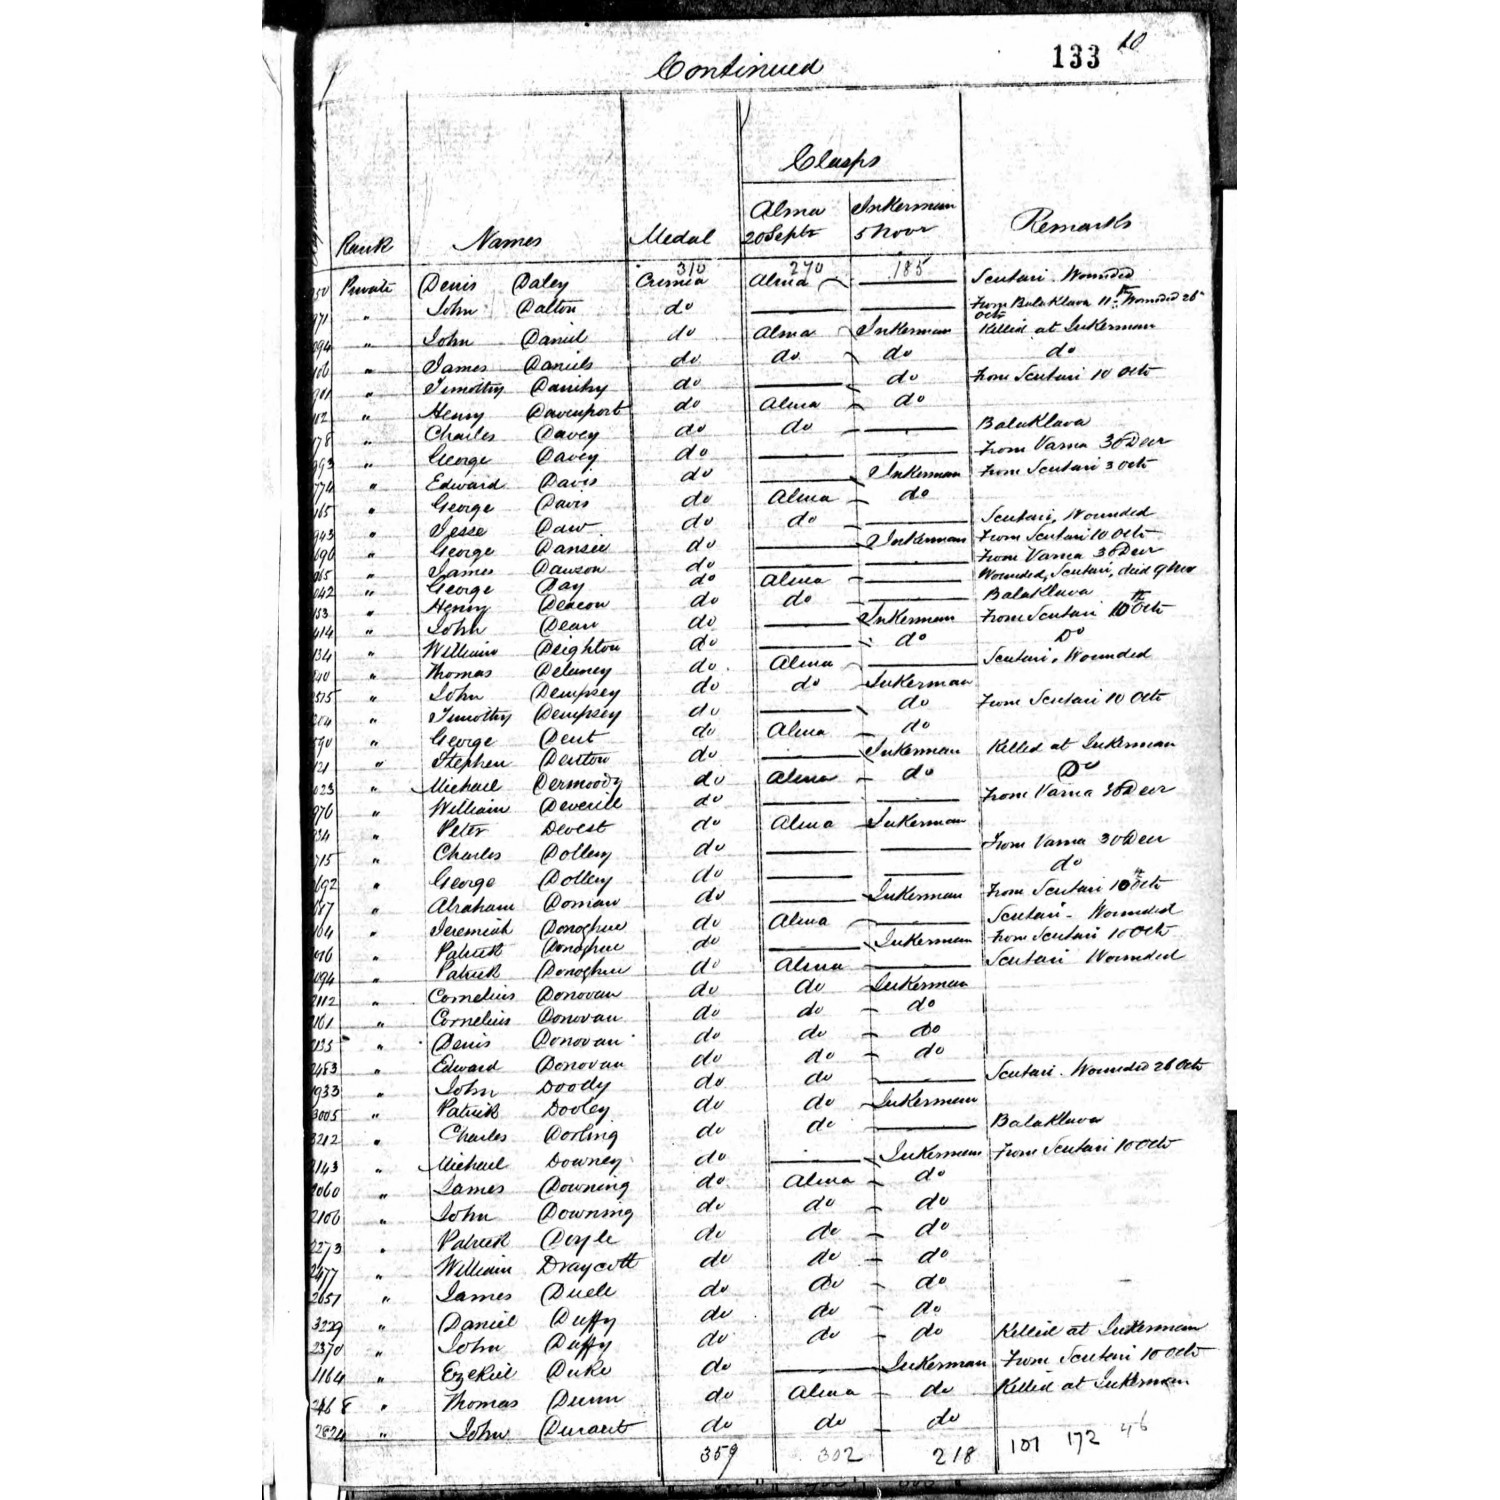 Continued 133 10
Clasps
Rank Names Medal Alma 20 Septr Inkerman 5 Novr Remarks
310 270 185
Private Denis Daley Crimea Alma — Scutari. Wounded
" John Dalton do — — From Balaklava 11th Wounded 26 Octr
" John Daniel do Alma Inkerman Killed at Inkerman
" James Daniels do do do do
" Timothy do — do From Scutari 10 Octr
" Henry Davenport do Alma do
" Charles Davey do do — Balaklava
" George Davey do — — From Varna 30 Decr
" Edward Davis do — Inkerman From Scutari 3 Octr
" George Davis do Alma do
" Jesse Daw do do — Scutari, Wounded
" George Dansie do — Inkerman From Scutari 10 Octr
" James Dawson do — — From Varna 30 Decr
" George Day do Alma — Wounded, Scutari, died 9 Nov
" Henry Deacon do do — Balaklava
" John Dean do — Inkerman From Scutari 10th Octr
" William Deighton do — do Do
" Thomas Delaney do Alma — Scutari, Wounded
" John Dempsey do do Inkerman
" Timothy Dempsey do — do From Scutari 10 Octr
" George Dent do Alma do
" Stephen Denton do — Inkerman Killed at Inkerman
" Michael Dermoody do Alma do Do
" William Deverill do — — From Varna 30 Decr
" Peter Devest do Alma Inkerman
" Charles Dollery do — — From Varna 30 Decr
" George Dollery do — — do
" Abraham Doman do — Inkerman From Scutari 10th Octr
" Jeremiah Donoghue do Alma — Scutari - Wounded
" Patrick Donoghue do — Inkerman From Scutari 10 Octr
" Patrick Donoghue do Alma — Scutari Wounded
2112 " Cornelius Donovan do do Inkerman
" Cornelius Donovan do do do
" Denis Donovan do do do
2483 " Edward Donovan do do do
" John Doody do do — Scutari. Wounded 26 Octr
3005 " Patrick Dooley do do Inkerman
3212 " Charles Dorling do do — Balaklava
" Michael Downey do — Inkerman From Scutari 10 Octr
" James Downing do Alma do
2106 " John Downing do do do
2273 " Patrick Doyle do do do
2477 " William Draycott do do do
" James Duell do do do
3229 " Daniel Duffy do do do
2370 " John Duffy do do do Killed at Inkerman
1164 " Ezekiel Duke do — Inkerman From Scutari 10 Octr
2468 " Thomas Dunn do Alma do Killed at Inkerman
2824 " John Durant do do do
359 302 218 101 172 46